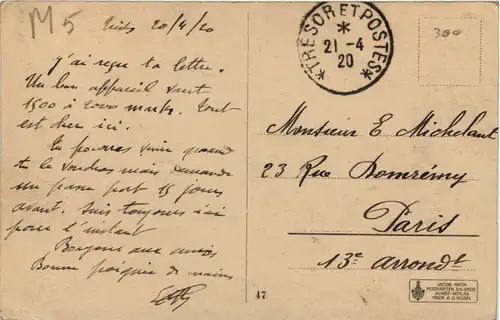 M5
20/4/20
j'ai reçu ta lettre.
Un bon appareil vaut
1500 à 2000 marks. Tout
est cher ici.
Tu pourras venir quand
tu le voudras mais demande
un passe port 15 jours
avant. Suis toujours ici
pour l'instant
Bonjour aux amis
Bonne poignée de mains
TRESOR ET POSTES
21-4
20
300
Monsieur E Michelant
23 Rue Domrémy
Paris
13e arrondt
47
JACOB KRON
POSTKARTEN EN GROS
KUNST-VERLAG
TRIER A.D. MOSEL